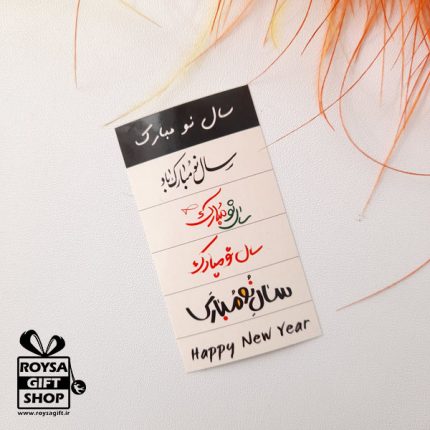 سال نو مبارک
سال نو مبارک باد
سال نو مبارک
سال نو مبارک
سال نو مبارک
Happy New Year
ROYSA
GIFT
SHOP
www.roysagift.ir